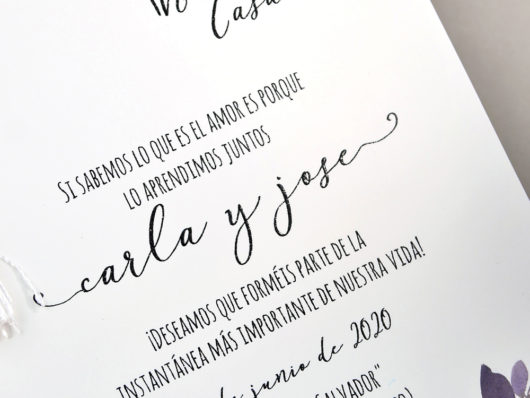 SI SABEMOS LO QUE ES EL AMOR ES PORQUE
LO APRENDIMOS JUNTOS
carla y jose
¡DESEAMOS QUE FORMÉIS PARTE DE LA
INSTANTÁNEA MÁS IMPORTANTE DE NUESTRA VIDA!
de junio de 2020
SALVADOR"